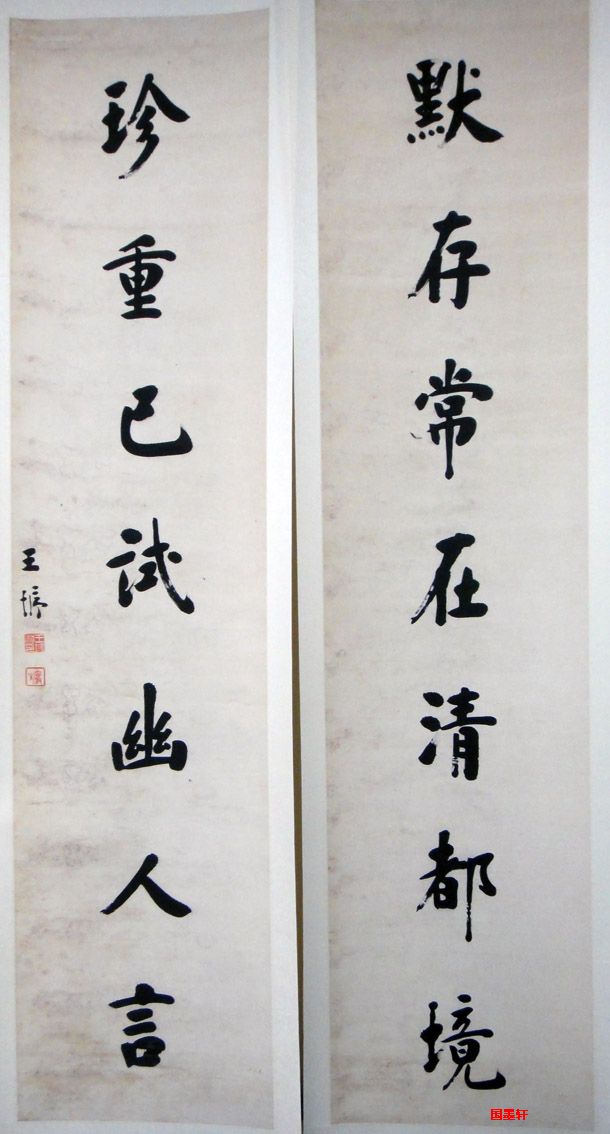 默存常在清都境
珍重已试幽人言
王
国墨轩